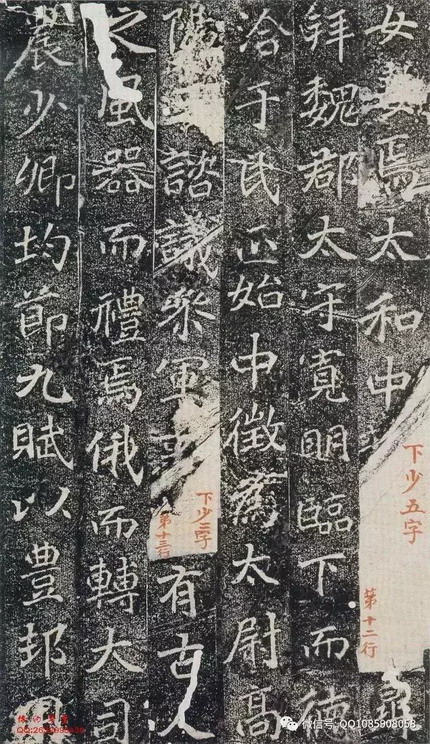 女妻焉太和中
下少五字
第十二行
拜魏郡太守寬明臨下而德
洽于民正始中徵爲太尉高
陽王諮議參軍事
下少三字
第十三行
有古人
之風器而禮焉俄而轉大司
農少卿均節九賦以豊邦用
微信号: QQ1085908058